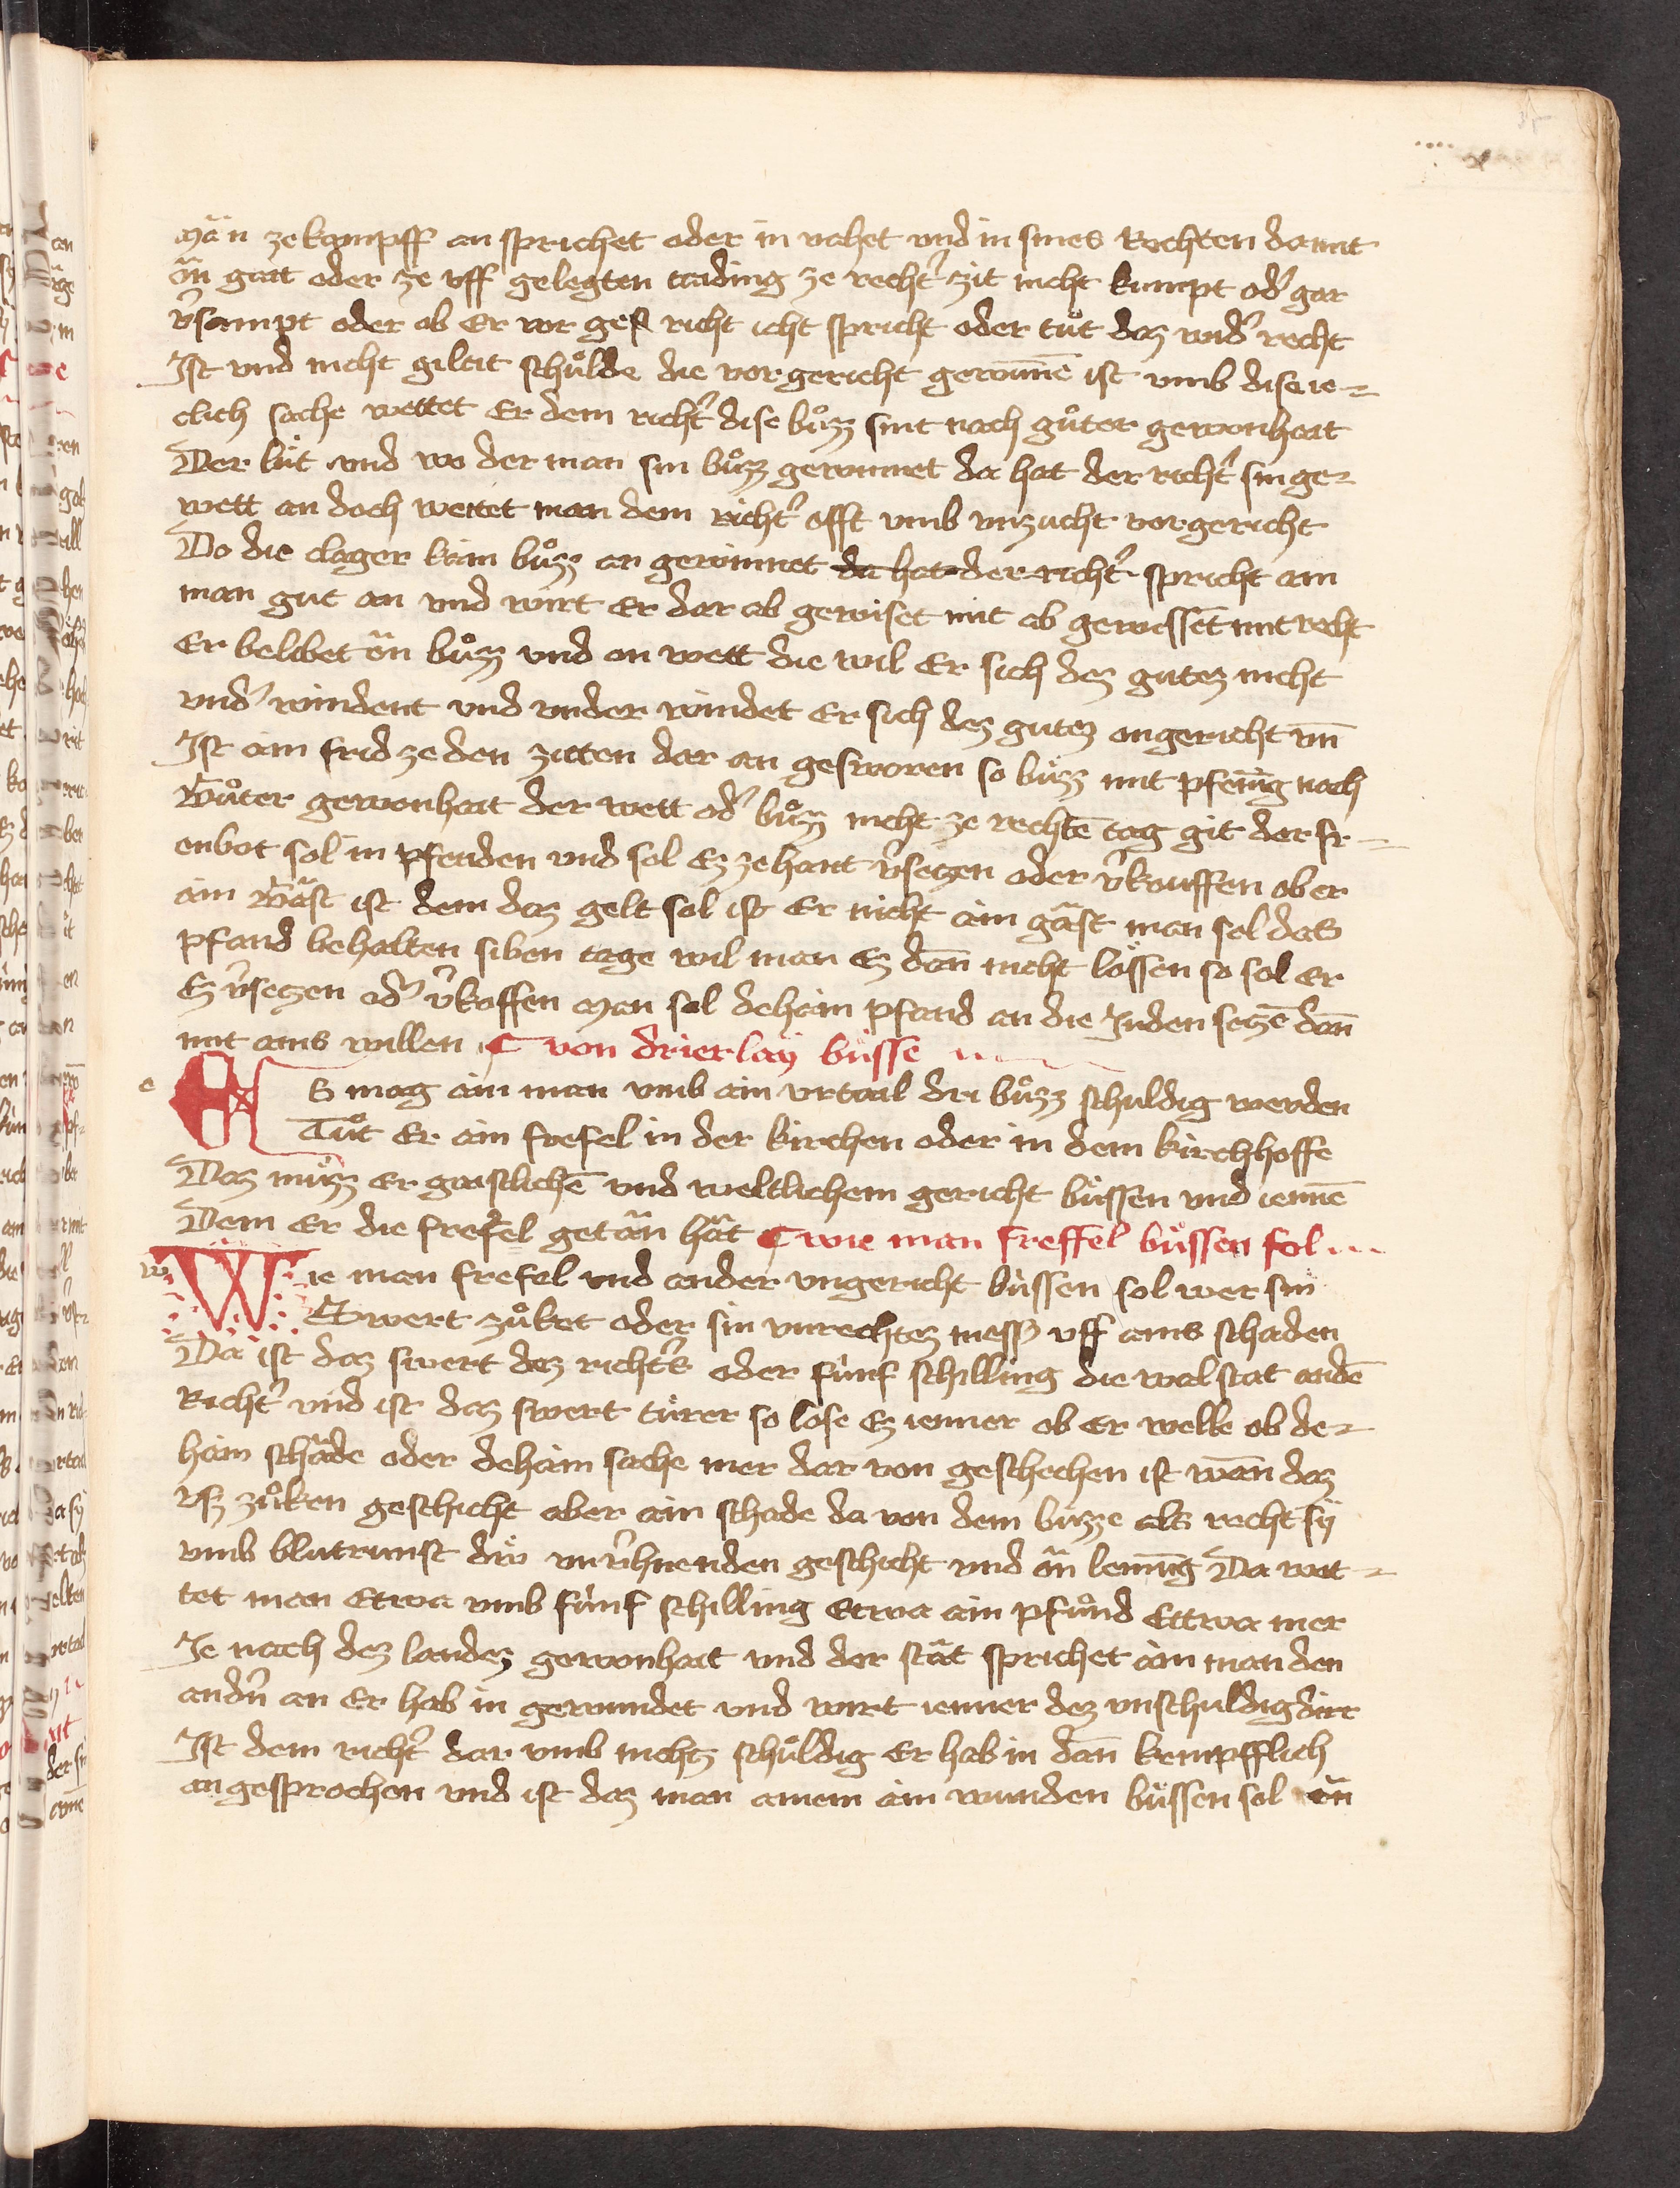 män ze kampff an sprichet oder in vahet vnd in sines Rechten da mit
ön gatt oder ze vff gelegten tading ze rechtˀ zit nicht kumpt odˀ gar
vˀsampt oder ob Er vor ge richt icht spricht oder tůt daz widˀ recht
Ist vnd nicht giltit schůlde die vor gericht gewunnē ist vmb dise ie-
clich sache wettet Er dem richtˀ dise bůzz sint nach gůter gewonhait
Der lüt vnd wo der man sin bůzz gewinnet da hat der richtˀ sin ge-
wett an doch wettet man dem richtˀ offt vmb vnzucht vorgericht
Do die clager kain bůzz an gewinnet da hat der richtˀ spricht ain
man gut an vnd wirt Er dar ab gewiset mit ab gewissēt mit recht
Er belibet ön bůzz vnd on wett die wil Er sich dez gutez nicht
vndˀ windent vnd vnder windet Er sich dez gutez on gericht vn̄
Ist ain frid ze den zitten dar an gesworen so büzz mit pfening nach
Gůter gewonhait der wett odˀ bůzz nicht ze rechtē tag git der fr-
onbot sol in pfenden vnd sol Ez ze hant vˀsetzen oder vˀkouffen ob er
ain Gast ist dem daz gelt sol ist Er nicht ain gäst man sol das
pfand behalten siben tage wil man Ez dan̄ nicht lössen so sol Er
Ez vˀsetzen odˀ vˀkoffen man sol dehain pfand an die Juden setzē dan̄
mit ains willen ¶ von drierlay büsse
ES mag ain man vmb ain vrtail dri bůzz schuldig werden
Tůt Er ain frefel in der kirchen oder in dem kirchhoffe
Daz müzz er gaistlichē vnd weltlichem gericht büssen vnd iennē
Dem Er die frefel getän hät ¶ wie man freffel büssen sol
Wie man frefel vnd ander vngericht büssen sol wer sin
Swert zůket oder sin vnrechtez mess vff ains schaden
Da ist daz swert dez richtˀs oder fünf schilling die wal stat an dē
Richtˀ vnd ist daz swert türer so löse Ez ienner ob Er welle ob de-
hain schäde oder dehain sache mer dar von geschechen ist wan̄ daz
vsz zůken geschicht aber ain schade da von dem büzze als recht sy
vmb blutrunst die geschicht vnd ön lemung Da wet-
tet man Etwa vmb fünf schilling Etwa ain pfůnd Ettwa mer
Je nach dez landez gewonhait vnd der stät sprichet ain man den
andˀn an Er hab in gewundet vnd wirt ienner dez vnschuldig dirr
Ist dem richtˀ dar vmb nichtz schůldig Er hab in dan̄ kempfflich
an gesprochen vnd ist daz man ainem ain wunden büssen sol ön